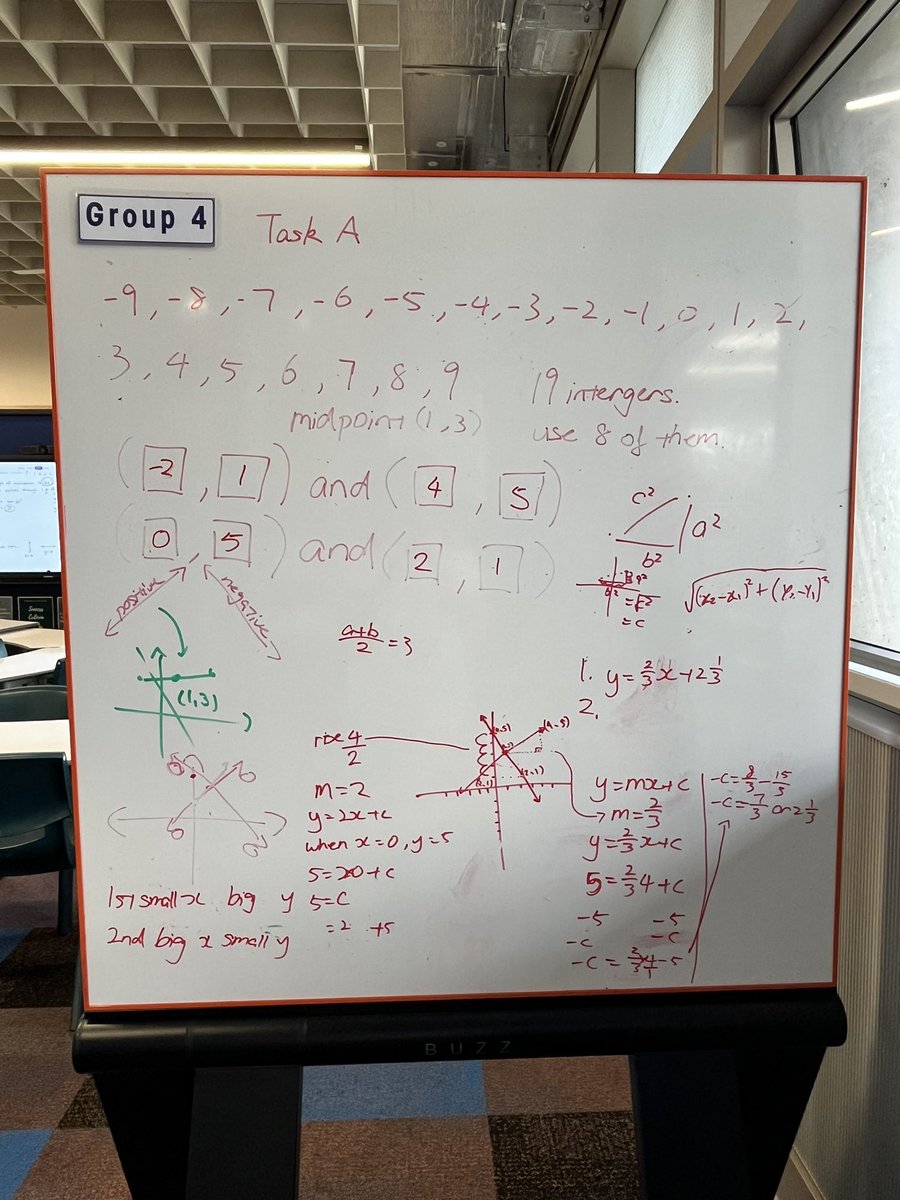 Group 4
Task A
-9, -8, -7, -6, -5, -4, -3, -2, -1, 0, 1, 2,
3, 4, 5, 6, 7, 8, 9
19 intergers.
use 8 of them.
midpoint (1,3)
(-2, 1) and (4, 5)
(0, 5) and (2, 1)
positive
negative
c²
a²
b²
√(x₂-x₁)²+(y₂-y₁)²
= c
(a+b)/2 = 3
(1,3)
1. y=2/3x+2 1/3
2.
rise 4/2
m=2
y=2x+c
when x=0, y=5
5=20+c
5=C
=2 +5
(0,5)
(4,5)
(2,1)
1st small x big y
2nd big x small y
y=mx+c
m=2/3
y=2/3x+c
5=2/3 4+c
-5 -5
-c -c
-c=8/3-15/3
-c=7/3 or 2 1/3
BUZZ